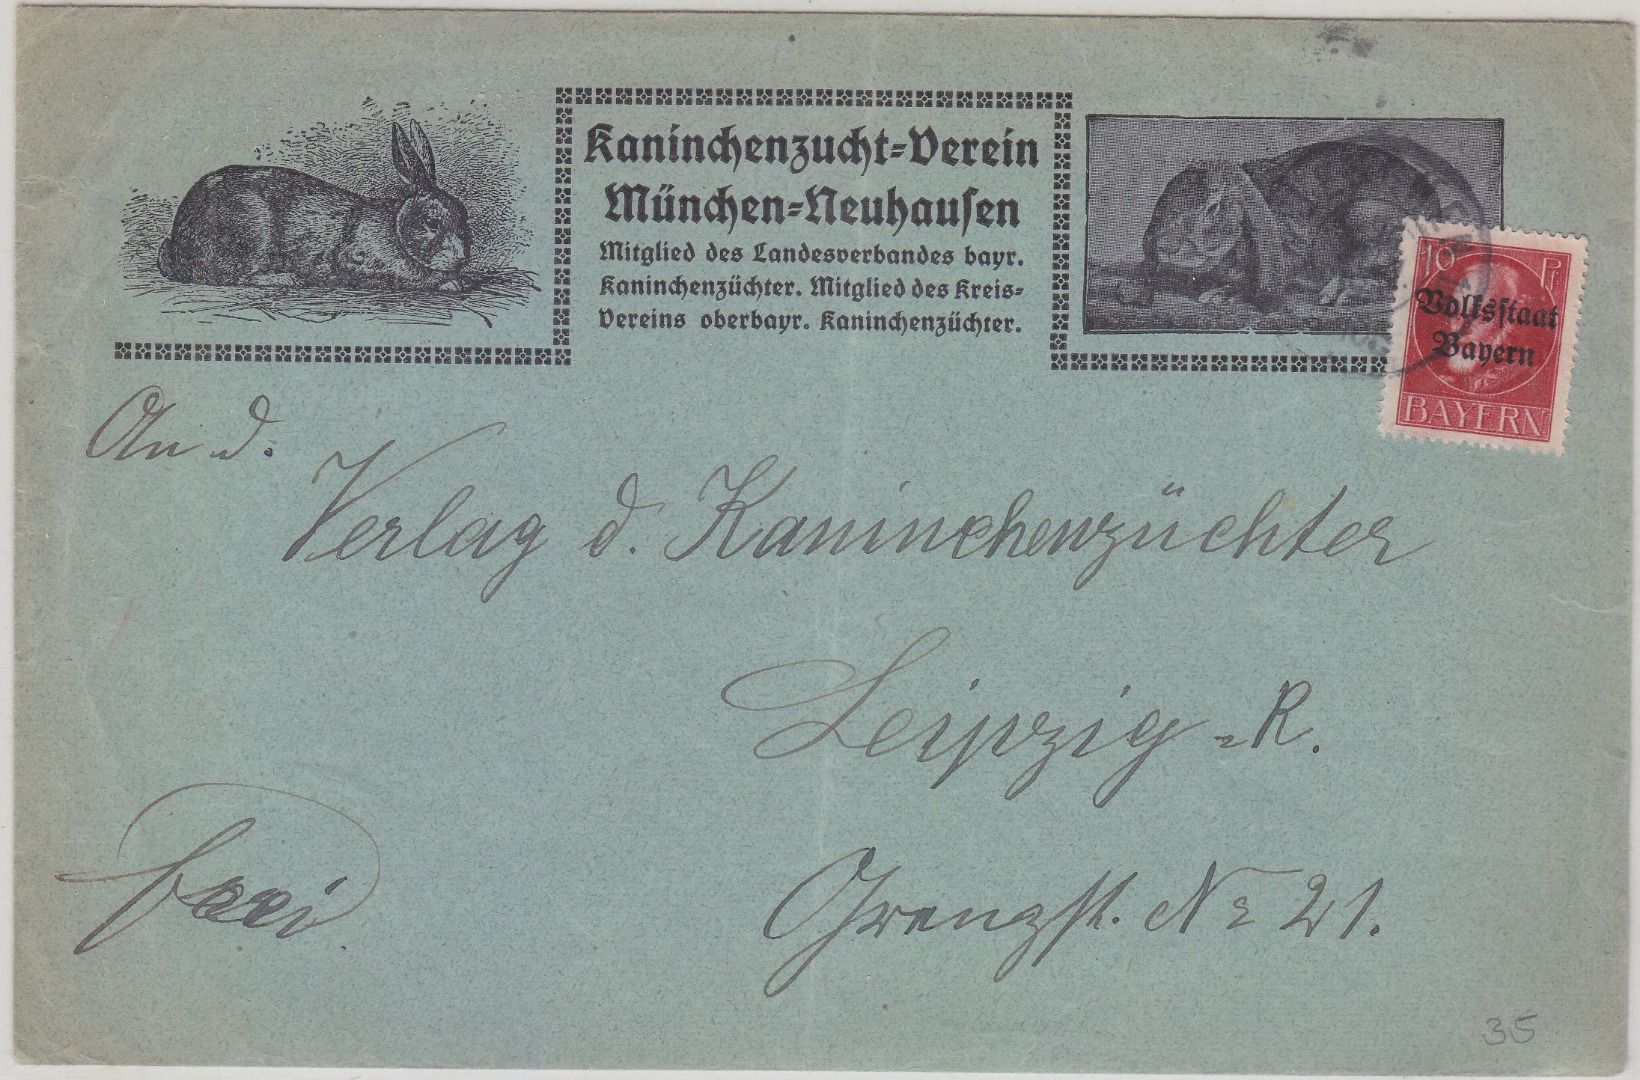 Kaninchenzucht-Verein
München-Neuhausen
Mitglied des Landesverbandes bayr.
Kaninchenzüchter. Mitglied des Kreis-
Vereins oberbayr. Kaninchenzüchter.
10 Pf
Volksstaat
Bayern
BAYERN
An d.
Verlag d. Kaninchenzüchter
Leipzig-R.
Grenzst. No 21.
frei
35